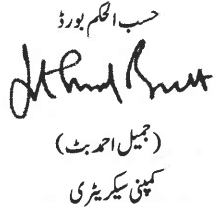 حسب الحکم بورڈ
(جمیل احمد بٹ)
کمپنی سیکریٹری